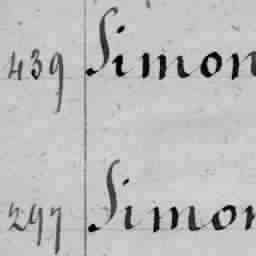 439 Simon
297 Simon